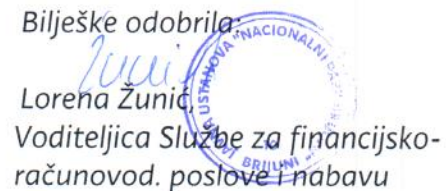 Bilješke odobrila:
Lorena Žunić,
Voditeljica Službe za financijsko-
računovod. poslove i nabavu
USTANOVA "NACIONALNI
BRIJUNI